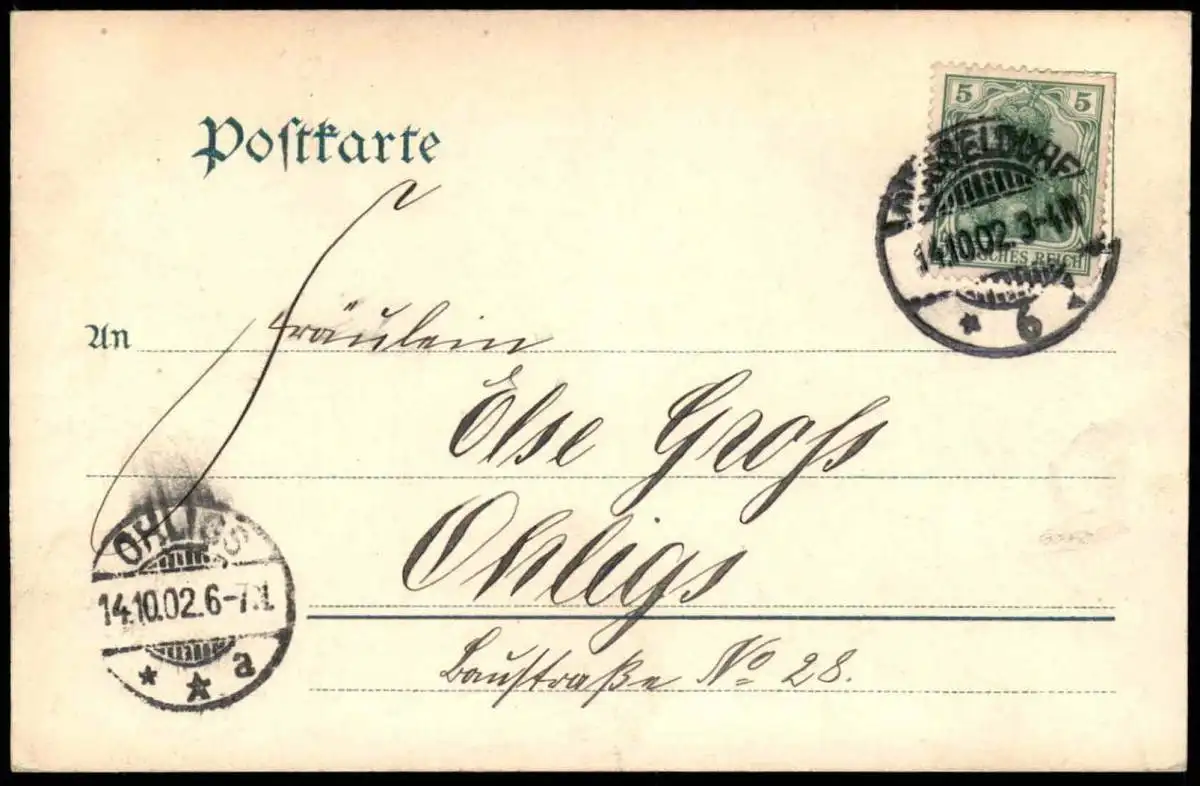 Postkarte
5 5
DÜSSELDORF
14.10.02. 3-4N
DEUTSCHES REICH
* 6
An Fräulein
Else Groß
Ohligs
Baustraße No 28.
OHLIGS
14.10.02. 6-7N.
* * a